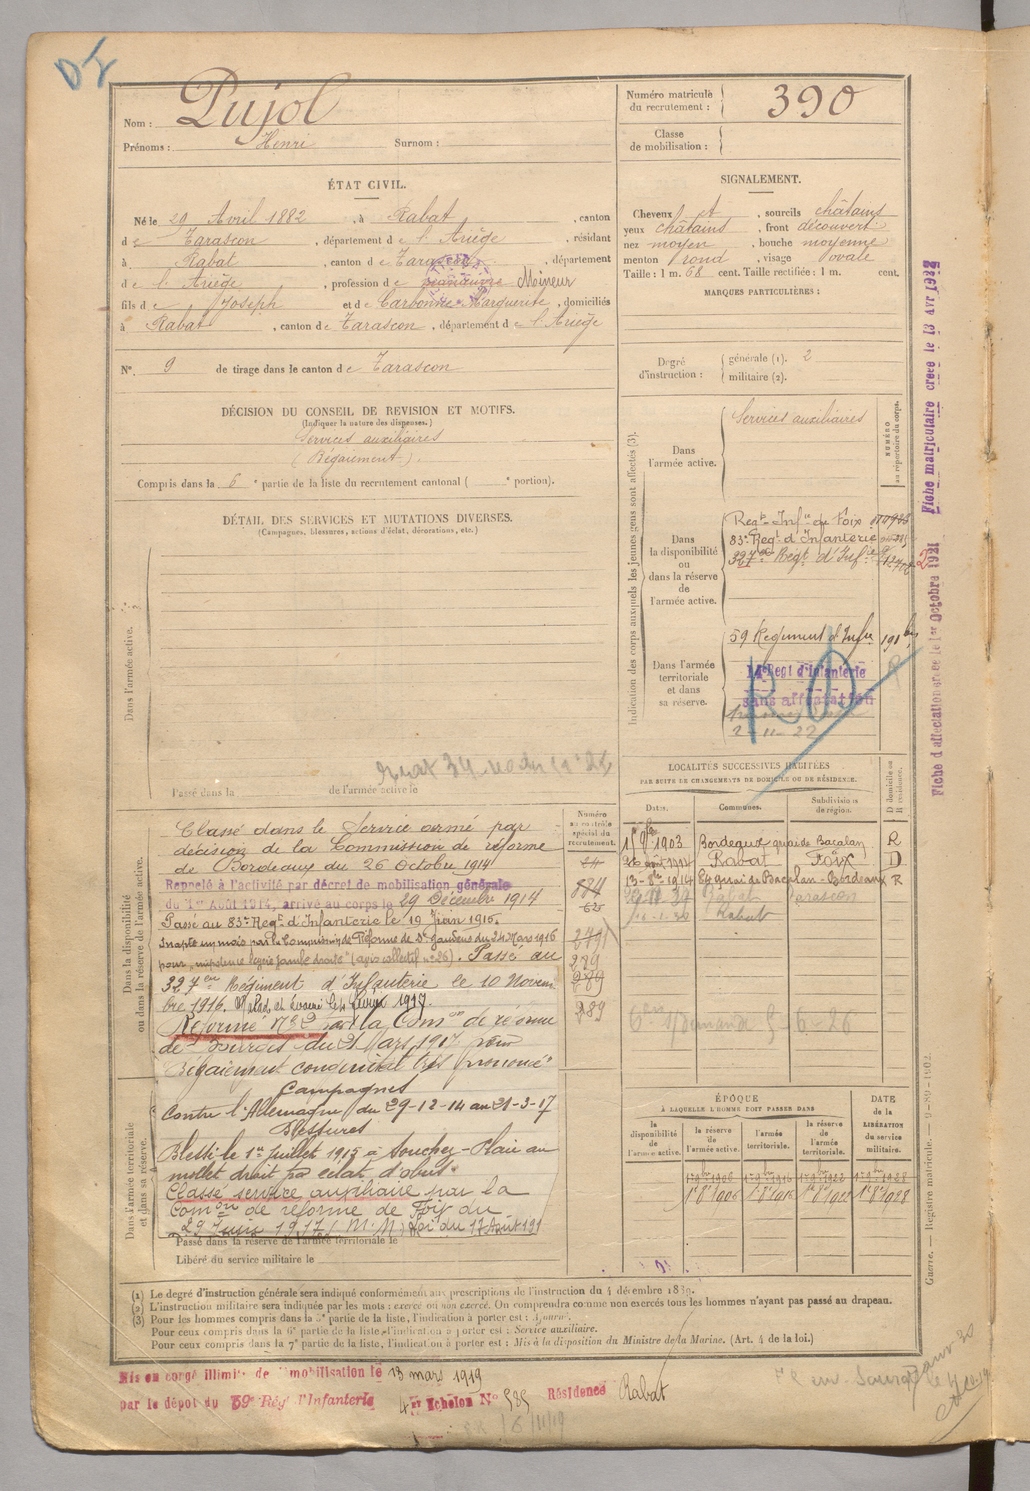 Nom : Pujol
Prénoms : Henri Surnom :
Numéro matricule du recrutement : 390
Classe de mobilisation :
ÉTAT CIVIL.
Né le 29 Avril 1882, à Rabat, canton
de Tarascon, département de l'Ariège, résidant
à Rabat, canton de Tarascon, département
de l'Ariège, profession de Mineur
fils de Joseph et de Carbonne Marguerite, domiciliés
à Rabat, canton de Tarascon, département de l'Ariège
N°. 9 de tirage dans le canton de Tarascon
DÉCISION DU CONSEIL DE REVISION ET MOTIFS.
(Indiquer la nature des dispenses.)
Services auxiliaires
(Bégaiement).
Compris dans la 6e partie de la liste du recrutement cantonal ( e portion).
DÉTAIL DES SERVICES ET MUTATIONS DIVERSES.
(Campagnes, blessures, actions d'éclat, décorations, etc.)
Dans l'armée active.
Passé dans la de l'armée active le
SIGNALEMENT.
Cheveux et, sourcils châtains
yeux châtains, front découvert
nez moyen, bouche moyenne
menton rond, visage ovale
Taille : 1 m. 68 cent. Taille rectifiée : 1 m. cent.
MARQUES PARTICULIÈRES :
Degré d'instruction : générale (1). 2
militaire (2).
Indication des corps auxquels les jeunes gens sont affectés (3).
NUMÉRO au répertoire du corps.
Dans l'armée active.
Services auxiliaires
Dans la disponibilité ou dans la réserve de l'armée active.
Regt Infie de Foix
83e Regt d'Infanterie
327e Regt d'Infie
Dans l'armée territoriale et dans sa réserve.
59 Régiment d'Infie
14e Regt d'Infanterie
sans affectation
2-11-22
Fiche d'affectation créée le 1er Octobre 1921
Fiche matriculaire créée le 13 Avr 1932
LOCALITÉS SUCCESSIVES HABITÉES
PAR SUITE DE CHANGEMENTS DE DOMICILE OU DE RÉSIDENCE.
Dates. Communes. Subdivisions de région. D domicile ou R résidence.
1903 Bordeaux quai de Bacalan R
Rabat Foix D
13-8bre-1914 84 quai de Bacalan-Bordeaux R
Rabat Tarascon
Rabat
Dans la disponibilité ou dans la réserve de l'armée active.
Numéro au contrôle spécial du recrutement.
Classé dans le Service armé par
décision de la Commission de réforme
de Bordeaux du 26 octobre 1914
Rappelé à l'activité par décret de mobilisation générale
du 1er Août 1914, arrivé au corps le 29 Décembre 1914
Passé au 83e Regt d'Infanterie le 19 Juin 1915.
Inapte un mois par la Commission de Réforme de St Gaudens du 24 Mars 1916
pour impotence légère jambe droite (avis collectif n° 26). Passé au
327eme Régiment d'Infanterie le 10 Novem
bre 1916. Malade et évacué le 4 Février 1917.
Réformé N° 2 par la Comon de réforme
de Bourges du 21 Mars 1917 pour
Bégaiement congénital très prononcé
Campagnes
Contre l'Allemagne du 29-12-14 au 21-3-17
Blessures
Blessé le 1er juillet 1915 à Souchez - Plaie au
mollet droit par éclat d'obus
Classé service auxiliaire par la
Comon de réforme de Foix du
29 Juin 1917 (M.M) Loi du 17 Août 191
Dans l'armée territoriale et dans sa réserve.
Passé dans la réserve de l'armée territoriale le
Libéré du service militaire le
ÉPOQUE
À LAQUELLE L'HOMME DOIT PASSER DANS
la disponibilité de l'armée active. la réserve de l'armée active. l'armée territoriale. la réserve de l'armée territoriale.
DATE de la LIBÉRATION du service militaire.
(1) Le degré d'instruction générale sera indiqué conformément aux prescriptions de l'instruction du 4 décembre 1889.
(2) L'instruction militaire sera indiquée par les mots : exercé ou non exercé. On comprendra comme non exercés tous les hommes n'ayant pas passé au drapeau.
(3) Pour les hommes compris dans la 5e partie de la liste, l'indication à porter est : Ajourné.
Pour ceux compris dans la 6e partie de la liste, l'indication à porter est : Service auxiliaire.
Pour ceux compris dans la 7e partie de la liste, l'indication à porter est : Mis à la disposition du Ministre de la Marine. (Art. 4 de la loi.)
Guerre. — Registre matricule. — 9-89-1902.
Mis en congé illimité de démobilisation le 13 mars 1919
par le dépôt du 59e Rég d'Infanterie 4e Echelon N° 585 Résidence Rabat